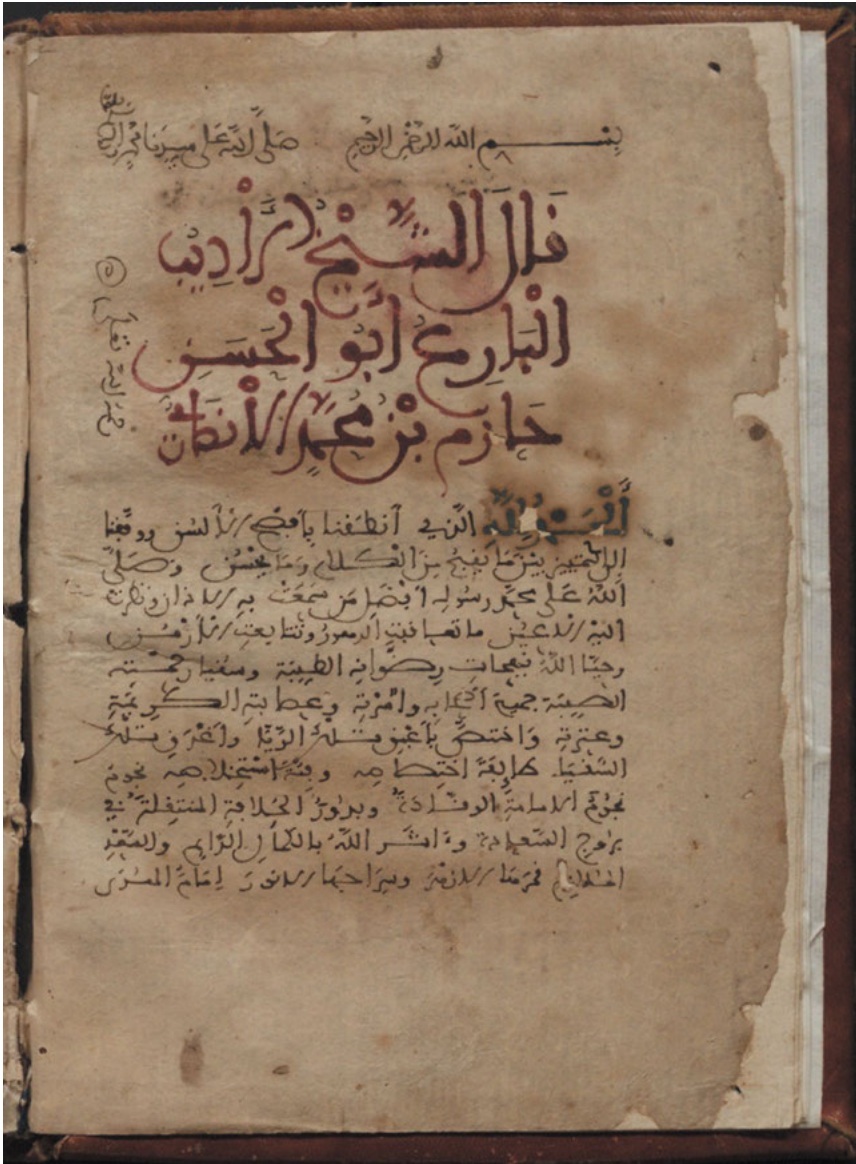 بسم الله الرحمن الرحيم صلى الله على سيدنا محمد
قال الشيخ الأديب
البارع أبو الحسن
حازم بن محمد الأنصاري
رحمه الله تعالى
الحمد لله الذي أنطقنا بأفصح الألسن ووفقنا
إلى التمييز بين ما يقبح من الكلام وما يحسن وصلى
الله على محمد رسوله أفضل من سمعت به الآذان ونظرت
إليه الأعين ما تعاقبت الدهور وتتابعت الأزمن
وحيا الله بنفحات رضوانه الطيبة وسقيا رحمته
الصيبة جميع أصحابه وأسرته وعصابته الكريمة
وعترته واختص بأعبق تلك الريا وأغدق تلك
السقيا طائفة اختصاصه وفئة استخلاصه نجوم
نجوم الإمامة الوقادة وبدور الخلافة المنتقلة في
بروج السعادة وءاثر الله بالكمال الدايم والسعد
قمرها الأزهر وسراجها الأنور إمام الهدى